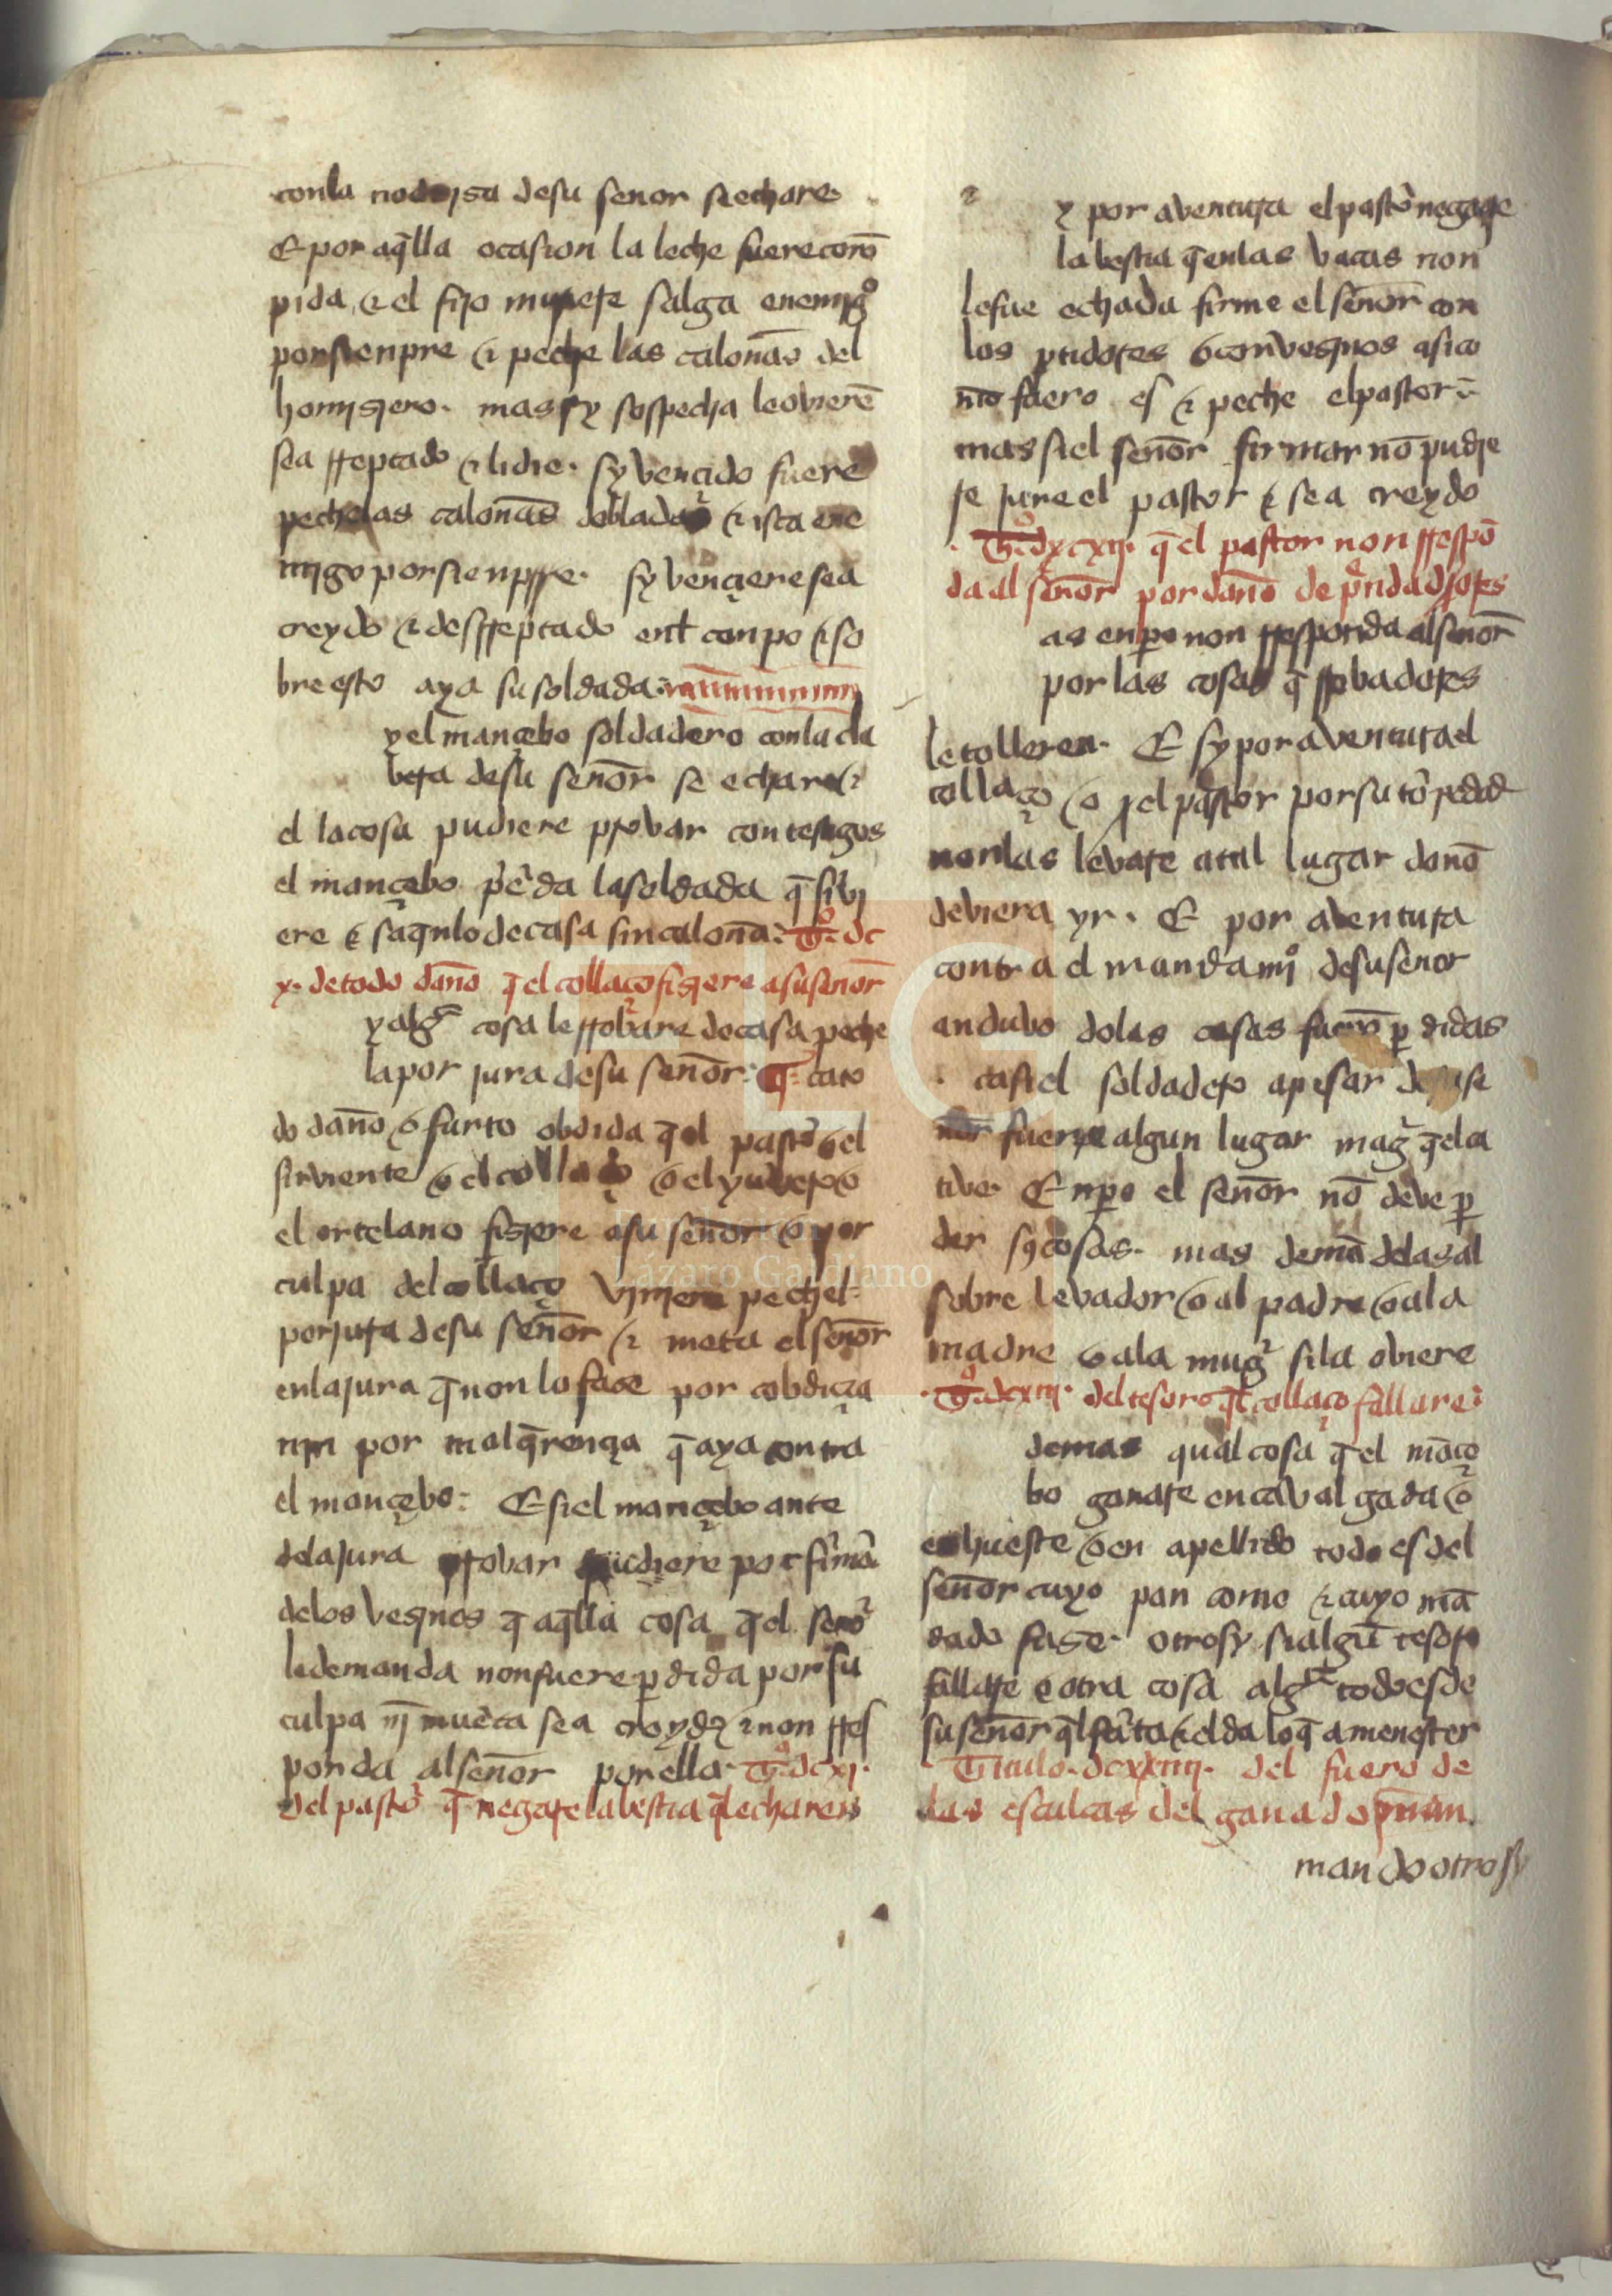 conla nodrisa desu senor se echare
E por aq̄lla ocasion la leche fuere coro͞
pida ⁊ el fijo muriere salga enemigo
por sienpre ⁊ peche las calon̄as del
homiçiero. mas sy sospecha le ovierē
sea rreptado ⁊ lidie. sy vençido fuere
peche las calon̄as dobladas ⁊ isca ene
migo por sienpre. sy vençiere sea
creydo ⁊ desrreptado enl canpo ⁊ so
bre esto aya su soldada:
y el mançebo soldadero conla cla
vera desu sen̄or se echare ⁊
el la cosa pudiere provar con testigos
el mançebo pierda la soldada q̄ sirvi
ere ⁊ saq̄nlo de casa sin calon̄a: T.º dc
x. de todo dan̄o q̄ el collaço fisiere a su sen̄or
y algª cosa le rrobare de casa peche
la por jura desu sen̄or: q̄ ca to
do dan̄o o furto o bdida q̄ el pastor o el
sirviente o el collaço o el yuvero o
el ortelano fisiere asu sen̄or o por
culpa del collaço viniere pechel
por jura desu sen̄or ⁊ meta el sen̄or
enla jura q̄ non lo fase por cobdiçia
nin por malq̄rençia q̄ aya contra
el mançebo: E si el mançebo ante
dela jura provar pudiere por firma
delos vesinos q̄ aq̄lla cosa q̄ el sen̄or
le demanda non fuere ꝑdida por su
culpa nin muerta sea creydo ⁊ non rres
ponda al sen̄or por ella. T.º dcxj.
del pastor q̄ negare la bestia q̄ le echaren
y por aventura el pastor negare
la bestia q̄ enlas vacas non
le fue echada firme el sen̄or con
los ꝑtidores o con vesinos asi co
mo fuero es ⁊ peche el pastor
mas si el sen̄or firmar nō pudie
re jure el pastor ⁊ sea creydo
T.º dxcxij. q̄ el pastor non rrespō
da al sen̄or por dan̄o de ꝑdidadores
as enꝑo non rresponda al sen̄or
por las cosas q̄ rrobadores
le tolleren. E sy por aventura el
collaço o el pastor por su torpedad
non las levare a tal lugar do nō
deviera yr. E por aventura
contra el mandamiº desu senor
andubo do las cosas fuerō ꝑdidas
casi el soldadero a pesar de su se
n̄or fuere algun lugar mag̃ q̄ ela
tive. Enꝑo el sen̄or nō deve ꝑ
der sus cosas. mas demādelas al
sobre levador o al padre o ala
madre o ala muger si la oviere
T.º dcxiij. del tesoro q̄l collaço fallare:
demas qual cosa q̄ el māçe
bo ganare en cavalgada o
en hueste o en apellido todo es del
sen̄or cuyo pan come ⁊ cuyo mā
dado fase. otrosy si algū tesoro
fallare o otra cosa algª todo es de
su sen̄or q̄l farta ⁊ el da lo q̄ a menester
Titulo. dcxiiij. del fuero de
las esculcas del ganado
mando otrosy
Lázaro Galdiano